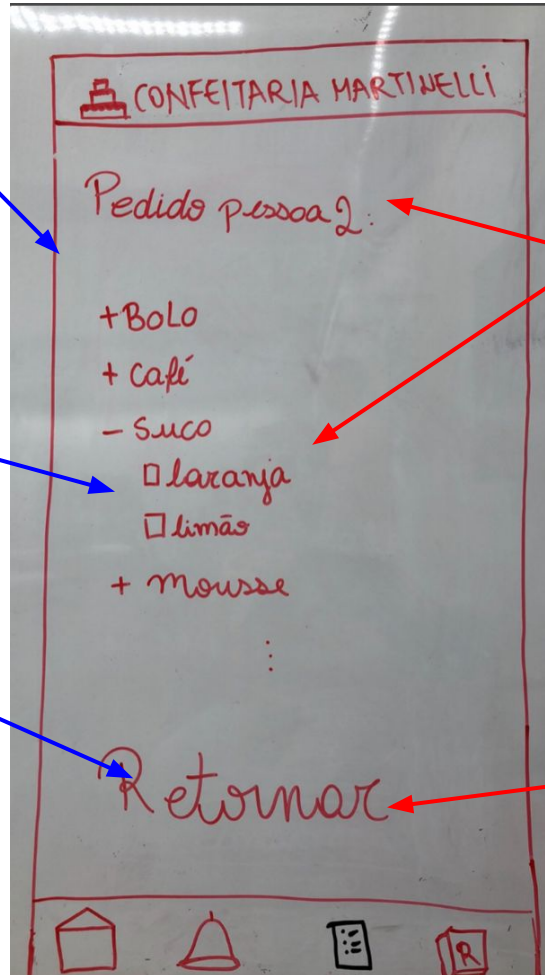 CONFEITARIA MARTINELLI
Pedido pessoa 2:
+ BOLO
+ Café
- Suco
laranja
limão
+ mousse
⋮
Retornar
R